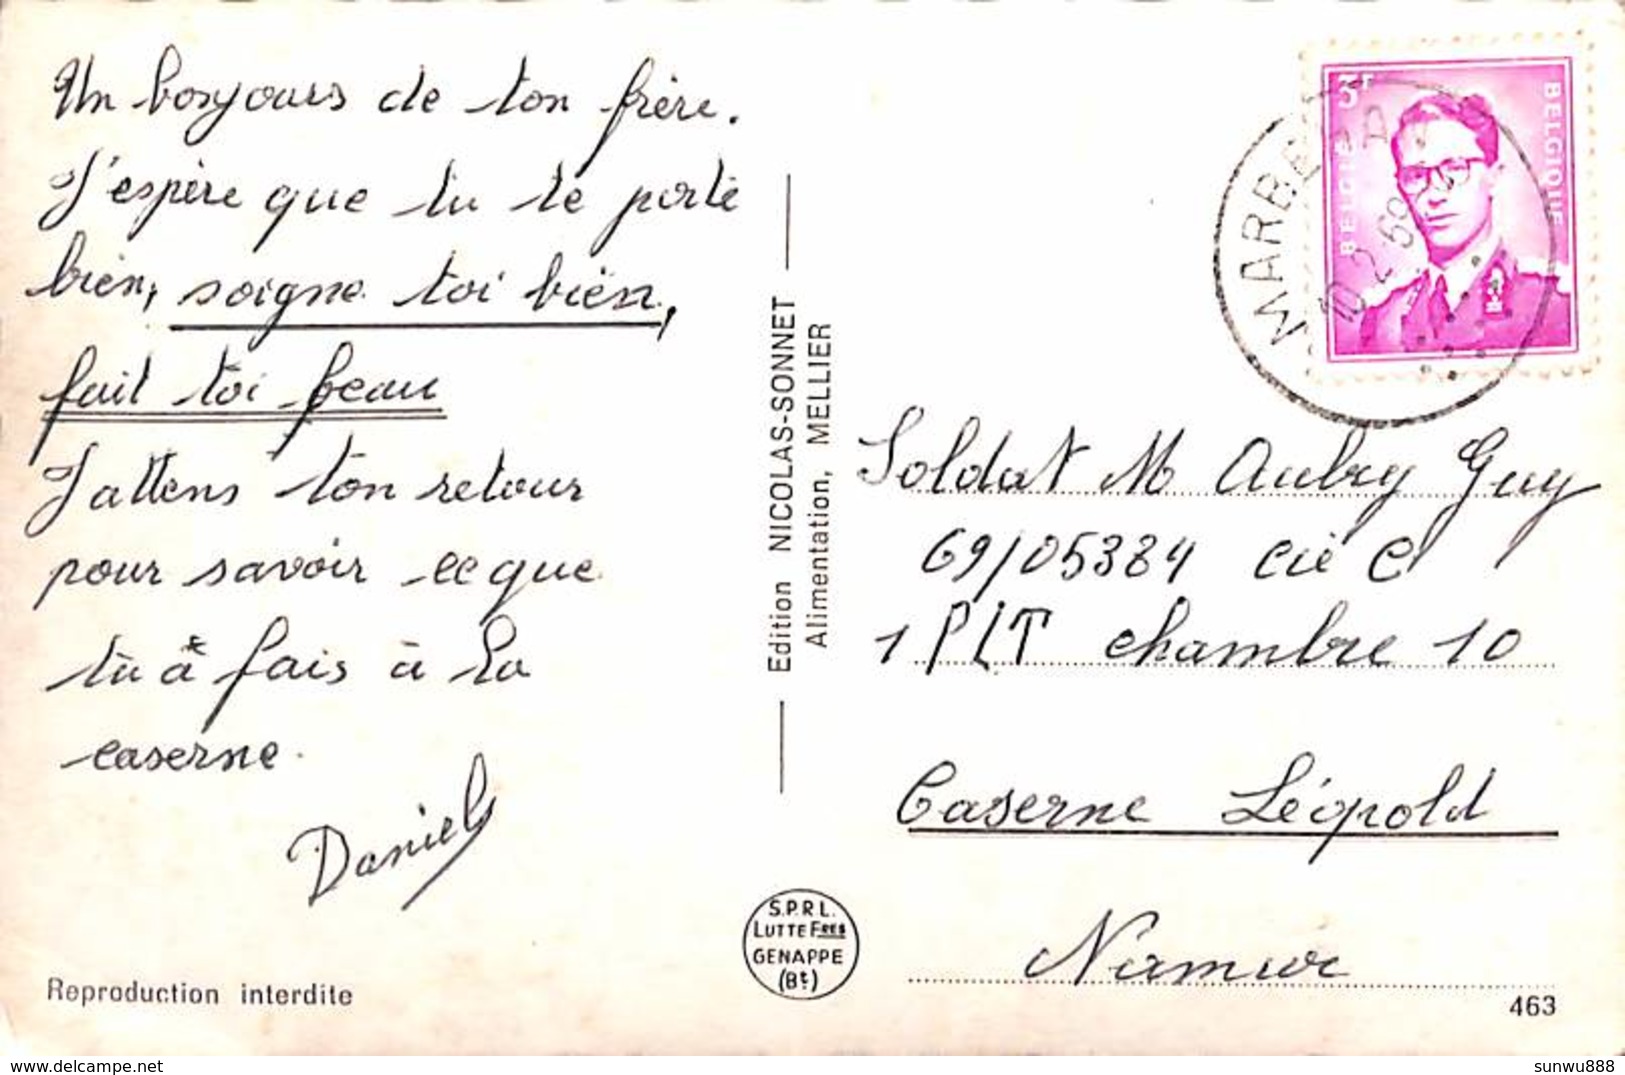 Un bonjours de ton frère.
J'espère que tu te porte
bien, soigne toi bien,
fait toi beau
J'attens ton retour
pour savoir ce que
tu a fais à la
caserne.
Daniel
Reproduction interdite
Edition NICOLAS-SONNET
Alimentation, MELLIER
S.P.R.L.
LUTTE FRES
GENAPPE
(Bt.)
3F
BELGIË
BELGIQUE
10-2-69
Soldat M Aubry Guy
69/05384 Cie C
1 PLT chambre 10
Caserne Léopold
Namur
463
delcampe.net
sunwu888